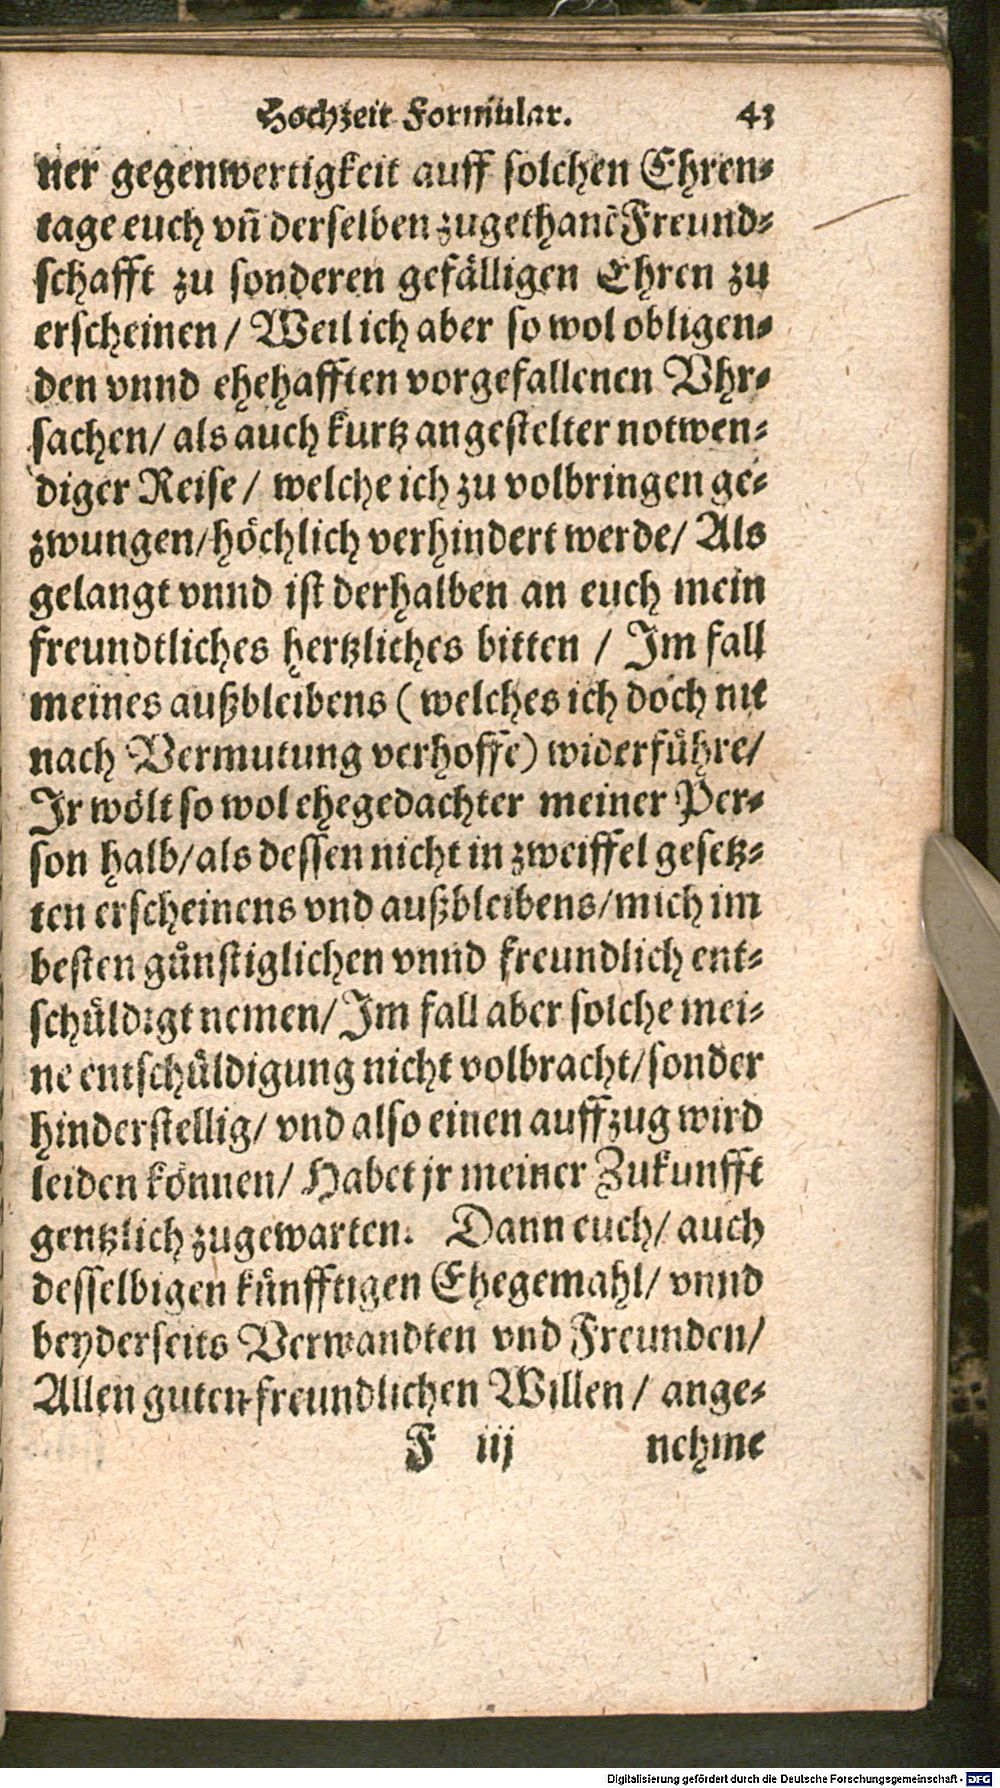 Hochzeit Formular. 43
ner gegenwertigkeit auff solchen Ehren-
tage euch vn̄ derselben zugethanē Freund-
schafft zu sonderen gefälligen Ehren zu
erscheinen / Weil ich aber so wol obligen-
den vnnd ehehafften vorgefallenen Vhr-
sachen / als auch kurtz angestelter notwen-
diger Reise / welche ich zu volbringen ge-
zwungen / höchlich verhindert werde / Als
gelangt vnnd ist derhalben an euch mein
freundtliches hertzliches bitten / Im fall
meines außbleibens ( welches ich doch nit
nach Vermutung verhoffe) widerführe /
Ir wölt so wol ehegedachter meiner Per-
son halb / als dessen nicht in zweiffel gesetz-
ten erscheinens vnd außbleibens / mich im
besten günstiglichen vnnd freundlich ent-
schüldigt nemen / Im fall aber solche mei-
ne entschüldigung nicht volbracht / sonder
hinderstellig / vnd also einen auffzug wird
leiden können / Habet jr meiner Zukunfft
gentzlich zugewarten. Dann euch / auch
desselbigen künfftigen Ehegemahl / vnnd
beyderseits Verwandten vnd Freunden /
Allen guten freundlichen Willen / ange-
F iij nehme
Digitalisierung gefördert durch die Deutsche Forschungsgemeinschaft - DFG